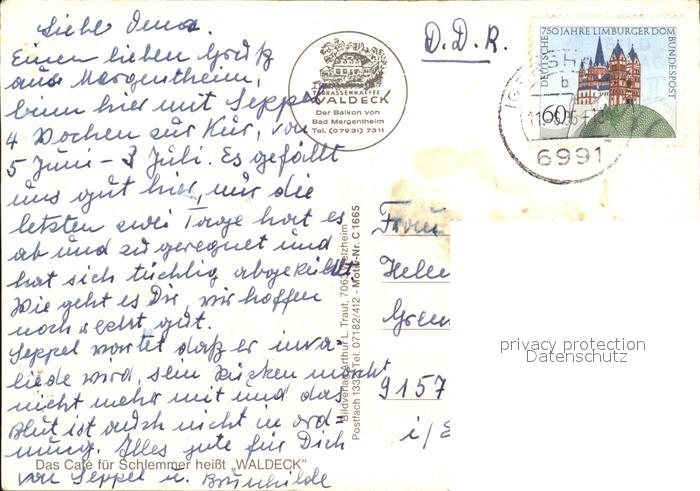 Liebe Oma.
Einen lieben Gruß
aus Mergentheim,
bin hier mit Seppel
4 Wochen zur Kur, von
5 Juni - 3 Juli. Es gefällt
uns gut hier, nur die
letzten zwei Tage hat es
ab und zu geregnet und
hat sich tüchtig abgekühlt
Wie geht es Dir, wir hoffen
noch recht gut.
Seppel wartet daß er inva-
liede wird, sein Rücken macht
nicht mehr mit und das
Blut ist auch nicht in ord-
nung. Alles gute für Dich
von Seppel u. Brunhilde
Das Café für Schlemmer heißt „WALDECK"
TERRASSENKAFFEE
WALDECK
Der Balkon von
Bad Mergentheim
Tel. (07931) 7311
D.D.R.
750 JAHRE LIMBURGER DOM
DEUTSCHE
BUNDESPOST
60
6991
Bildverlag Arthur L. Traut, 7063 Welzheim
Postfach 1333 Tel. 07182/412 - Motiv-Nr. C 1665
Frau
Helle
Green
9157
i/E
privacy protection
Datenschutz